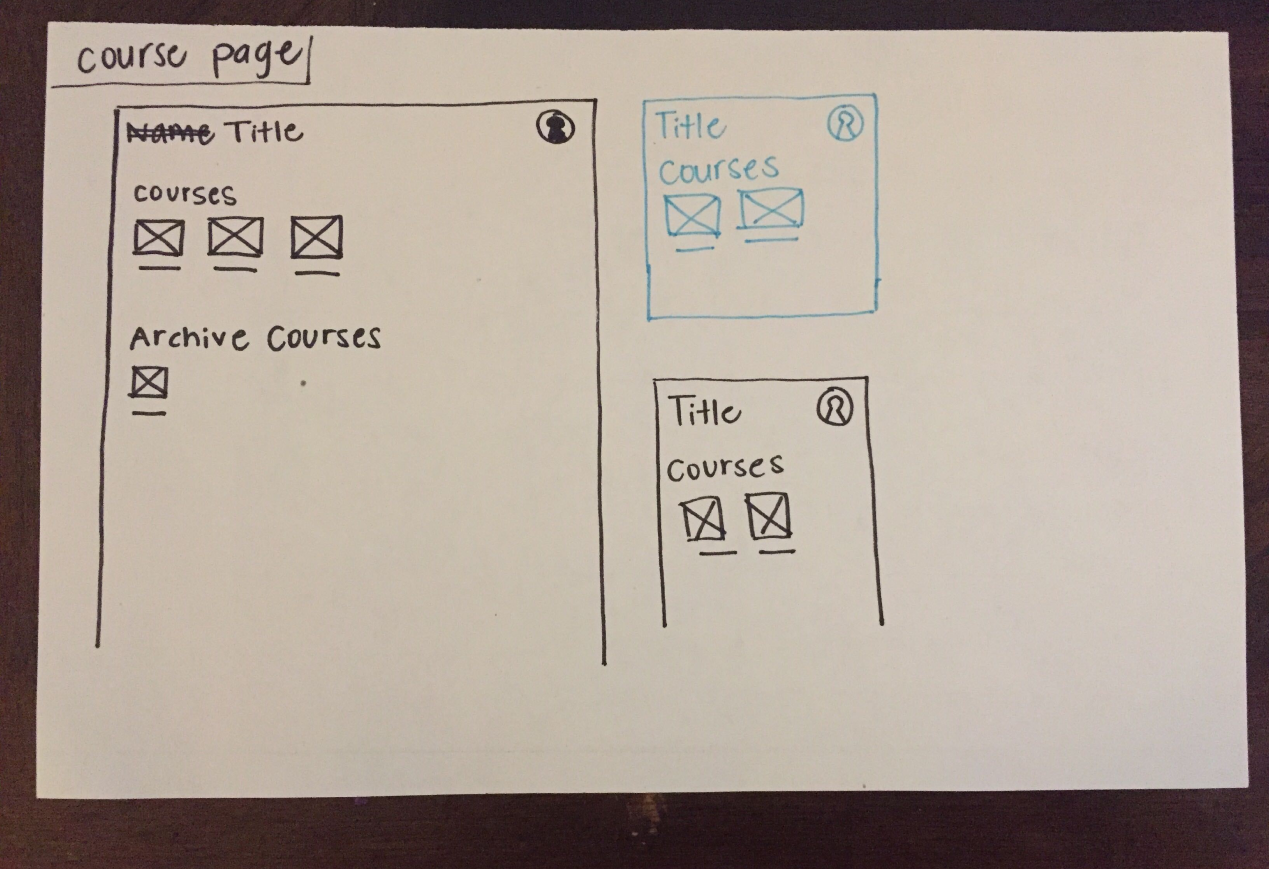 course page
Name Title
courses
Archive Courses
Title
Courses
Title
Courses